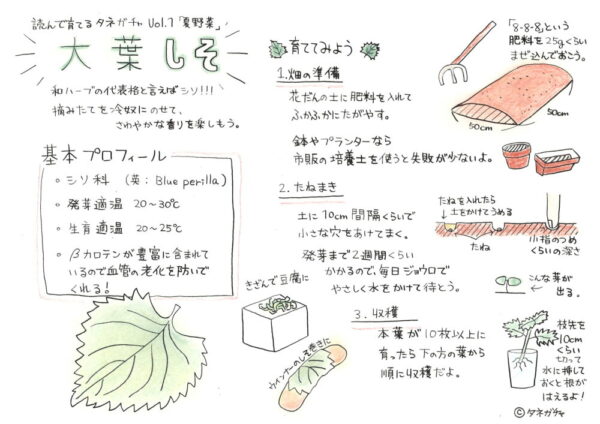 読んで育てる タネガチャ Vol.1「夏野菜」
大葉しそ
和ハーブの代表格と言えばシソ!!!
摘みたてを冷奴にのせて、
さわやかな香りを楽しもう。
基本プロフィール
シソ科 (英：Blue perilla)
発芽適温 20〜30℃
生育適温 20〜25℃
βカロテンが豊富に含まれて
いるので血管の老化を防いで
くれる!
きざんで豆腐に
ウインナーのしそ巻きに
育ててみよう
1.畑の準備
花だんの土に肥料を入れて
ふかふかにたがやす。
鉢やプランターなら
市販の培養土を使うと失敗が少ないよ。
「8-8-8」という
肥料を25gくらい
まぜ込んでおこう。
50cm
50cm
2.たねまき
土に10cm間隔くらいで
小さな穴をあけてまく。
発芽まで2週間くらい
かかるので、毎日ジョウロで
やさしく水をかけて待とう。
たねを入れたら
土をかけてうめる
たね
小指のつめ
くらいの深さ
こんな芽が
出る。
3.収穫
本葉が10枚以上に
育ったら下の方の葉から
順に収穫だよ。
枝先を
10cm
くらい
切って
水に挿して
おくと根が
はえるよ!
©タネガチャ